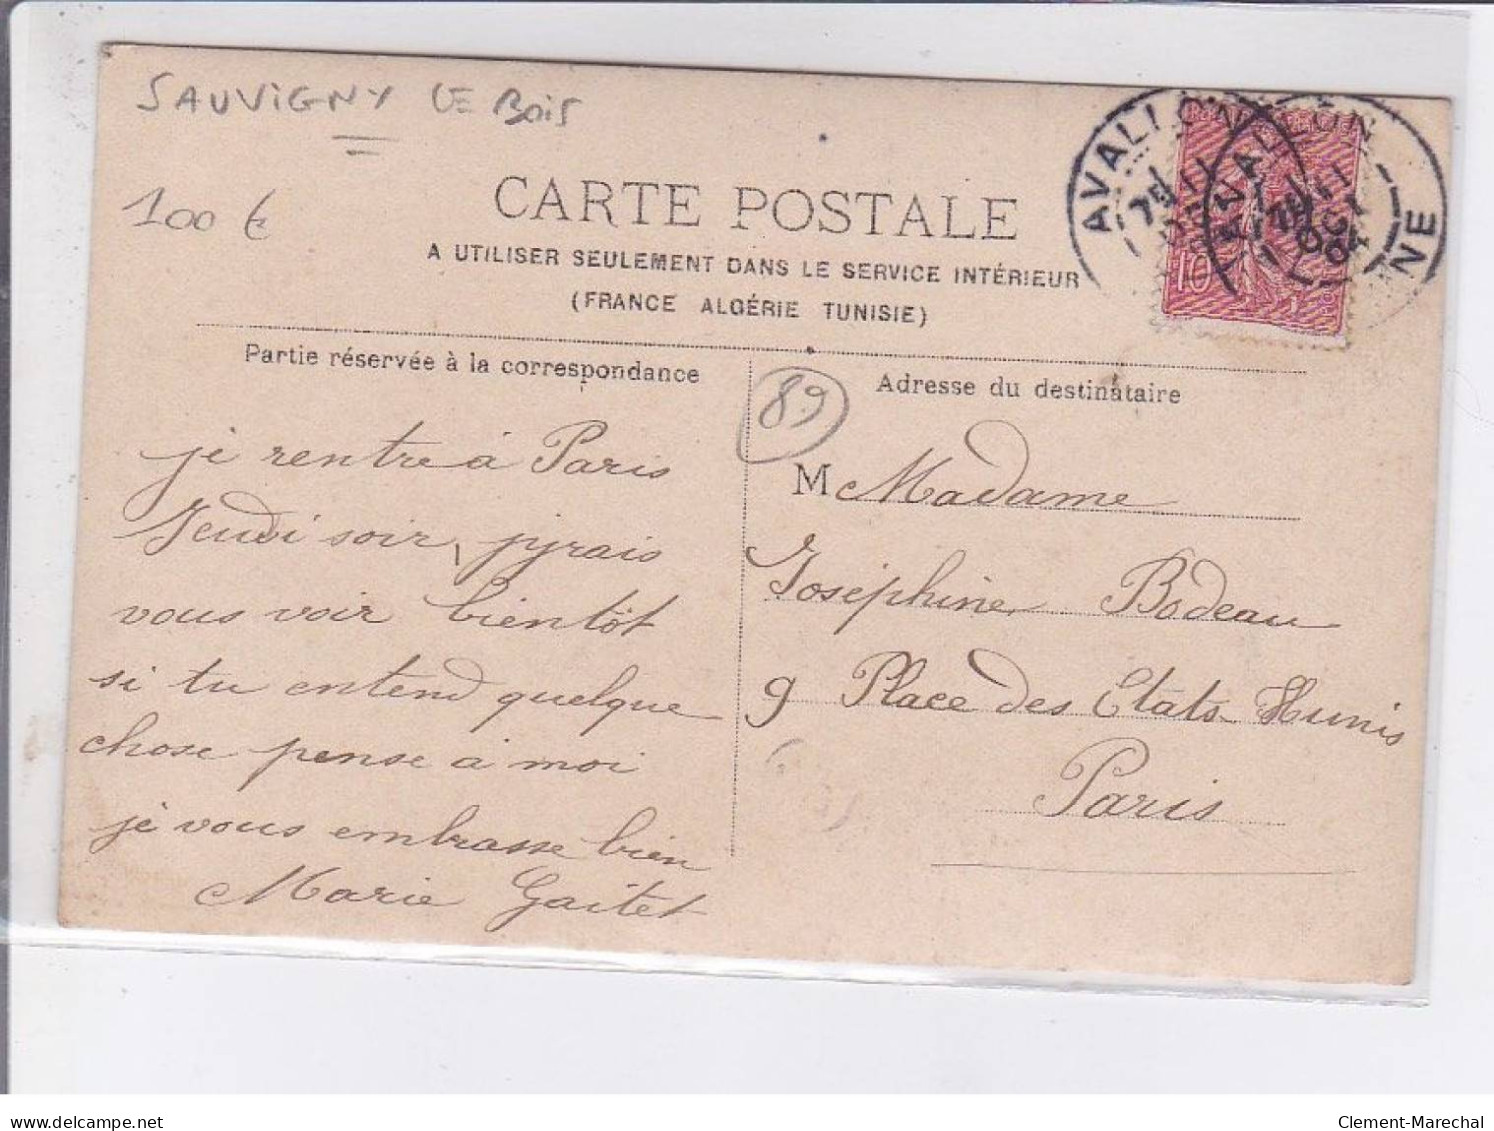 SAUVIGNY LE BOIS
100 €
CARTE POSTALE
A UTILISER SEULEMENT DANS LE SERVICE INTÉRIEUR
(FRANCE ALGÉRIE TUNISIE)
AVALLON
AVALLON
10
Partie réservée à la correspondance
89
Adresse du destinataire
je rentre à Paris
Jeudi soir, j'yrais
vous voir bientôt
si tu entend quelque
chose pense à moi
je vous embrasse bien
Marie Gaitet
M Madame
Joséphine Bodeau
9 Place des Etats-Hunis
Paris
delcampe.net
Clement-Marechal